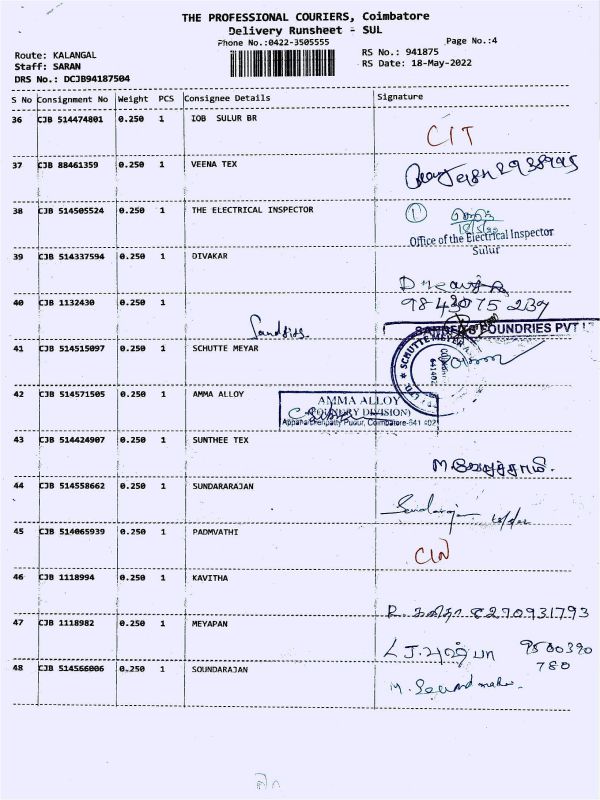 THE PROFESSIONAL COURIERS, Coimbatore
Delivery Runsheet - SUL
Phone No.:0422-3505555
Page No.:4
Route: KALANGAL
RS No.: 941875
Staff: SARAN
RS Date: 18-May-2022
DRS No.: DCJB94187504
S No Consignment No Weight PCS Consignee Details Signature
36 CJB 514474801 0.250 1 IOB SULUR BR
CIT
37 CJB 88461359 0.250 1 VEENA TEX
38 CJB 514505524 0.250 1 THE ELECTRICAL INSPECTOR
1
Office of the Electrical Inspector
Sulur
39 CJB 514337594 0.250 1 DIVAKAR
40 CJB 1132430 0.250 1
FOUNDRIES PVT
41 CJB 514515097 0.250 1 SCHUTTE MEYAR
SCHUTTE MEYER
42 CJB 514571505 0.250 1 AMMA ALLOY
AMMA ALLOY
(FOUNDRY DIVISION)
Coimbatore-641 402
43 CJB 514424907 0.250 1 SUNTHEE TEX
44 CJB 514558662 0.250 1 SUNDARARAJAN
45 CJB 514065939 0.250 1 PADMVATHI
46 CJB 1118994 0.250 1 KAVITHA
47 CJB 1118982 0.250 1 MEYAPAN
780
48 CJB 514566006 0.250 1 SOUNDARAJAN